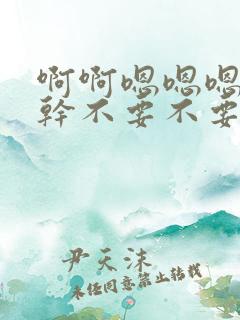 啊啊嗯嗯嗯
幹不要不要
尹天沫
未经同意禁止转载